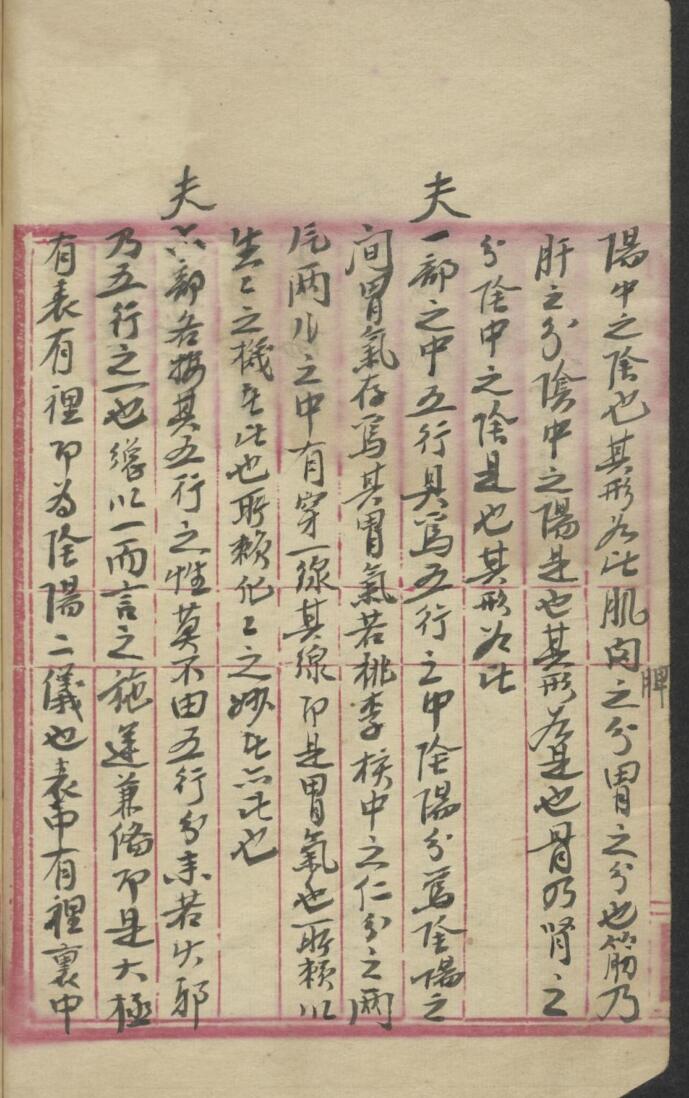 陽中之陰也其形如此肌肉之分胃之分也筋乃
脾
肝之分陰中之陽是也其形如是也骨乃腎之
分陰中之陰是也其形如此
夫一部之中五行具焉五行之中陰陽分焉陰陽之
間胃氣存焉其胃氣若桃李核中之仁分之兩
片兩片之中有穿一線其線即是胃氣也所賴以
生〻之機在此也所賴化〻之妙在此也
夫六部各按其五行之性莫不由五行分来若
乃五行之一也總以一而言之施運兼俻即是大極
有表有裡即為陰陽二儀也表中有裡裏中